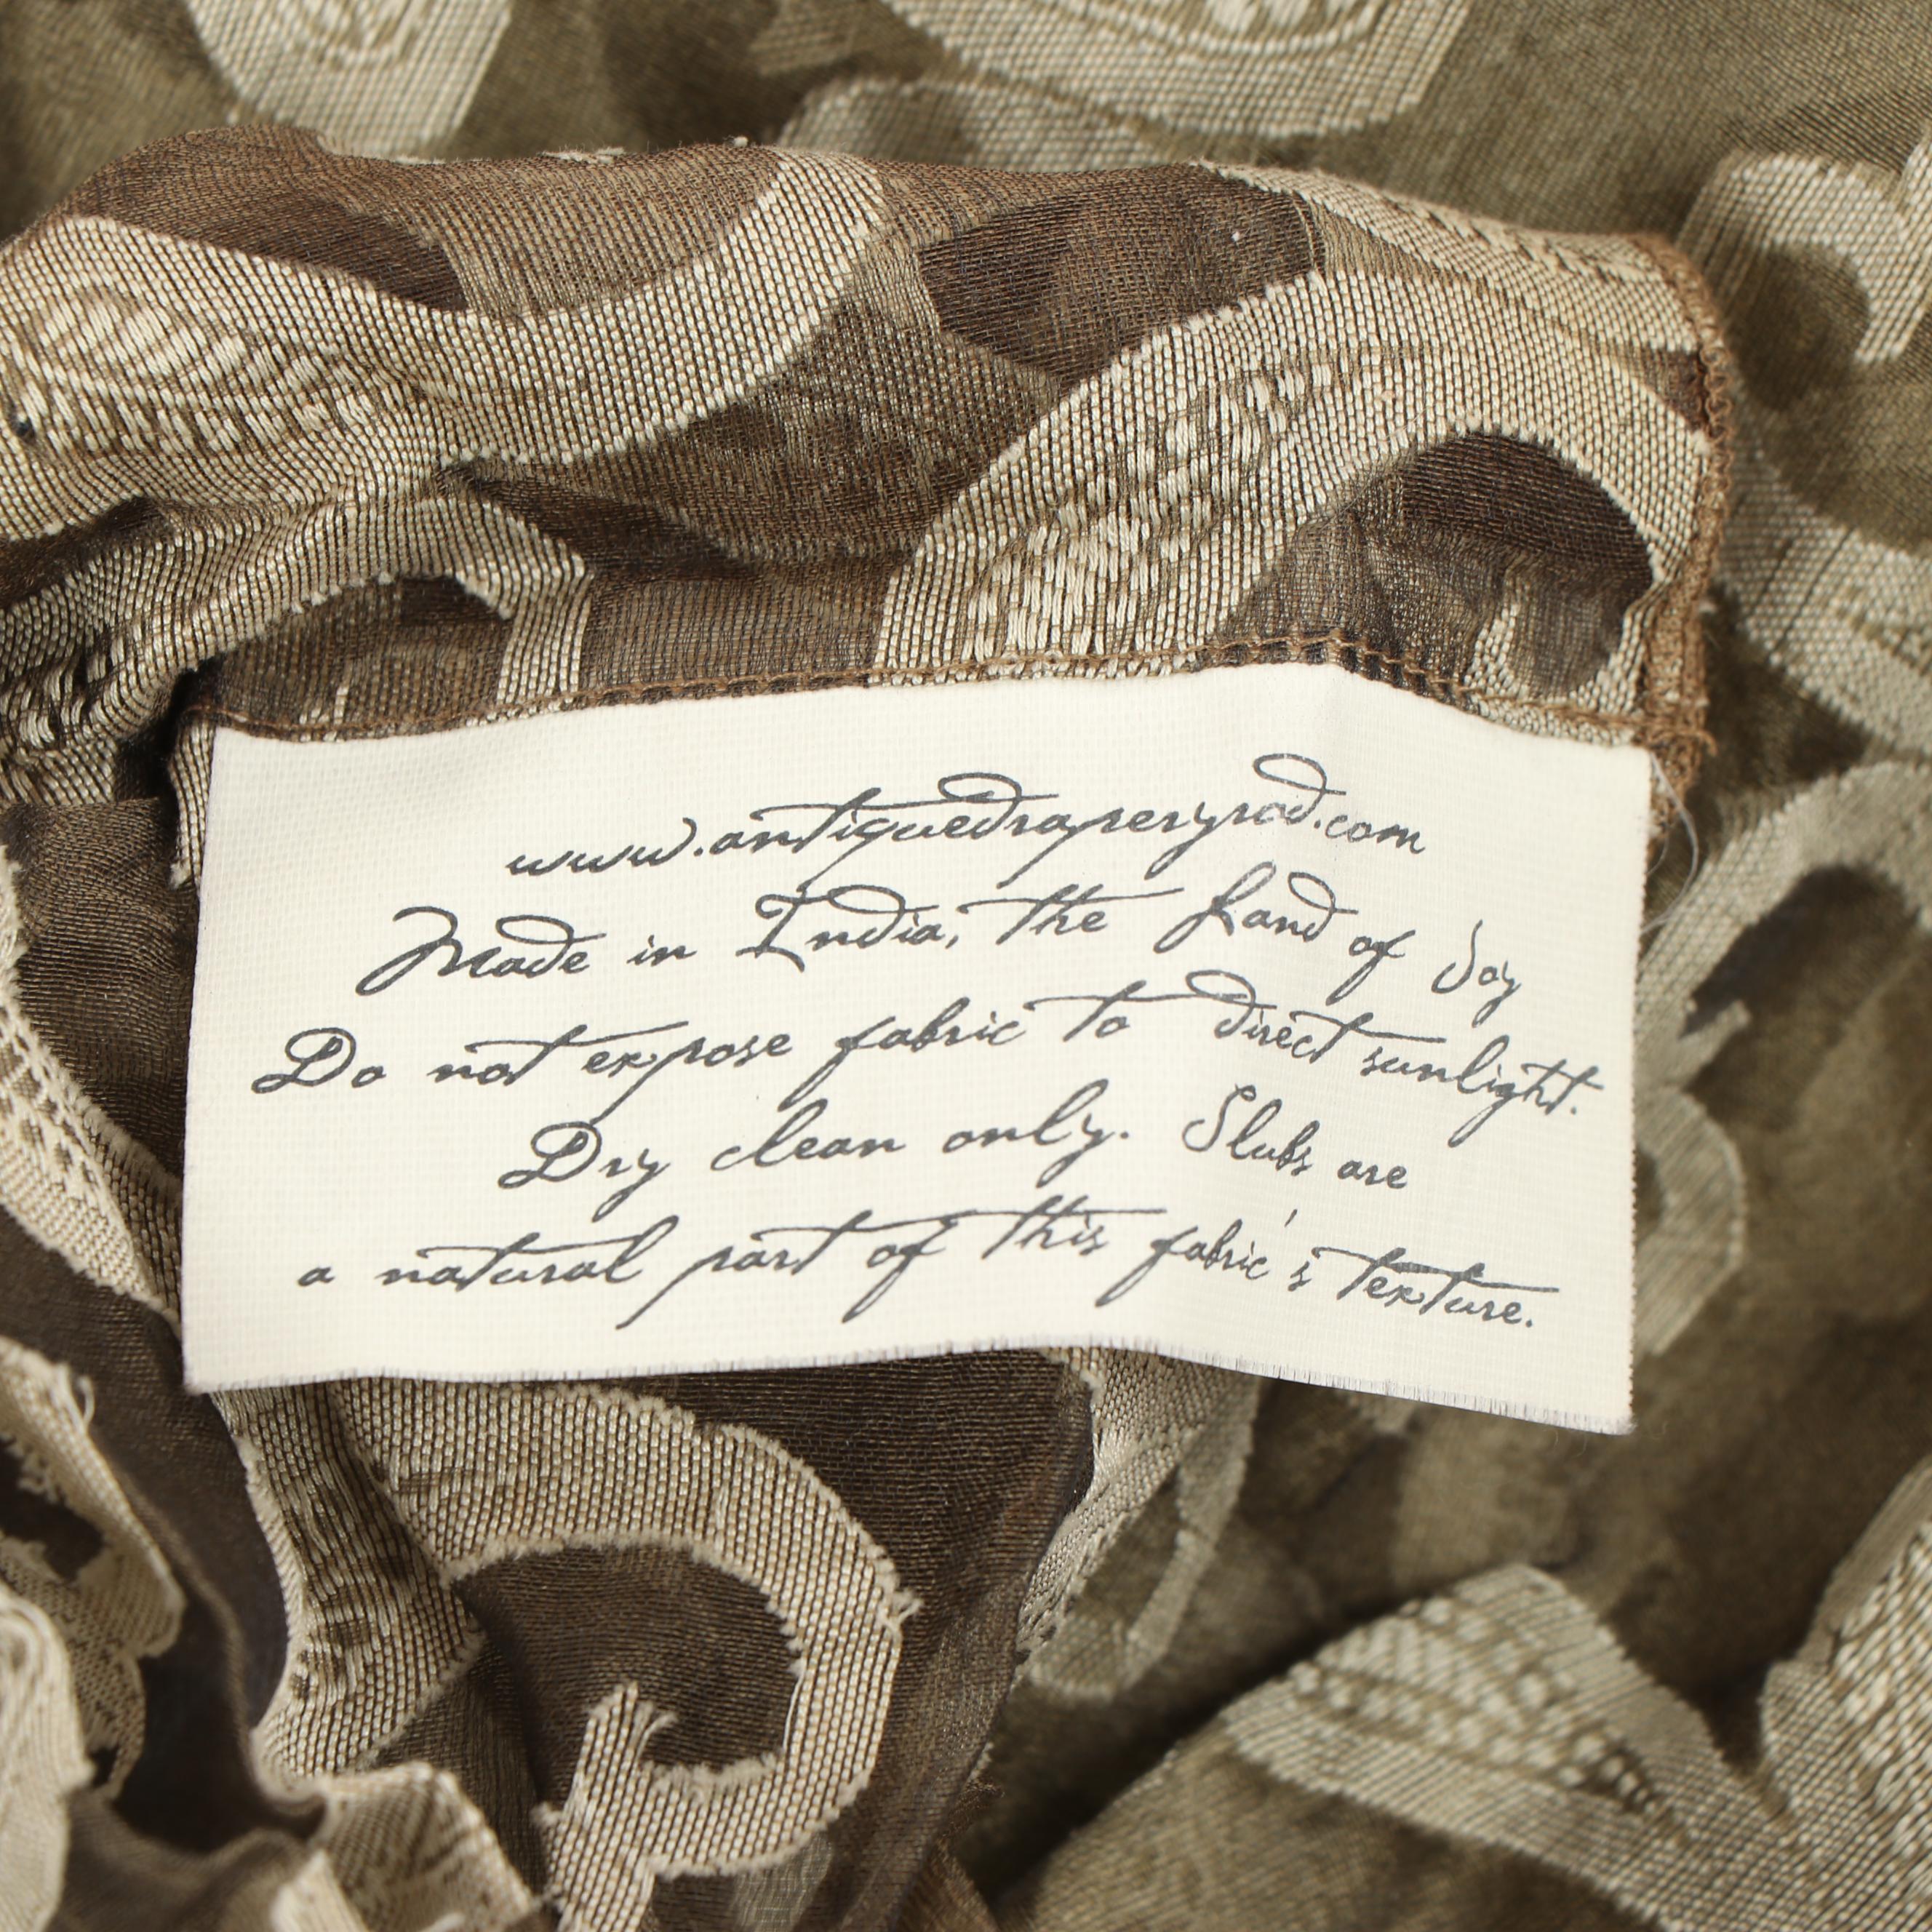 www.antiquedraperyrod.com
Made in India, the Land of Joy
Do not expose fabric to direct sunlight.
Dry clean only. Slubs are
a natural part of this fabric's texture.